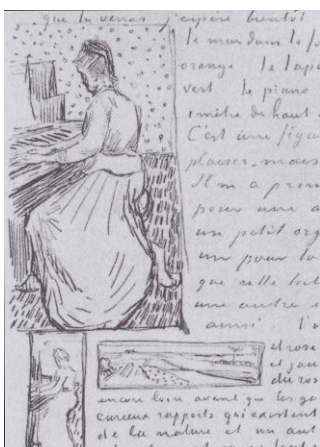 que tu verras j'espère bientôt
le mur dans le fo
orange le tapi
vert le piano
1 mètre de haut
C'est une figu
plaisir – mais
Il m'a prom
poser une a
un petit org
un pour to
que cette toile
une autre
aussi l'u
et rose
et jau
du ros
encore loin avant que les ge
curieux rapports qui existent
de la nature et un aut